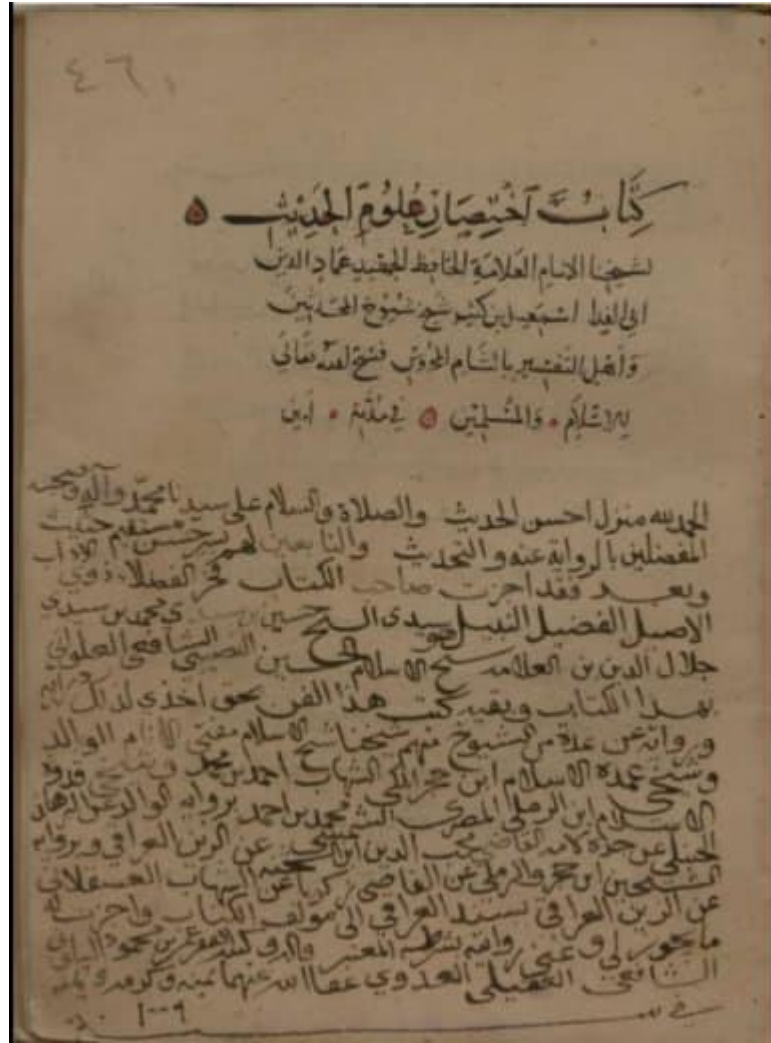 ٤٦
كتاب اختصار علوم الحديث
لشيخنا الامام العلامة الحافظ المفيد عماد الدين
ابي الفدا اسمعيل بن كثير شيخ شيوخ المحدثين
وأهل التفسير بالشام المحروس فسح الله تعالى
للاسلام والمسلمين في مدته امين
الحمد لله منزل احسن الحديث والصلاة والسلام على سيدنا محمد وآله وصحبه
المفضلين بالرواية عنه والتحدث والتابعين لهم بسير حسن حثيث
وبعد فقد اجزت صاحب الكتاب فخر الفضلاء ذوي الاداب
الاصيل الفضيل النبيل سيدي الشيخ حسين بن سيدي محمد بن سيدي
جلال الدين بن العلامة شيخ الاسلام حسين النصيبي الشافعي
بهذا الكتاب وبقية كتب هذا الفن بحق اخذي لذلك
وروايته عن عدة من الشيوخ منهم شيخنا شيخ الاسلام مفتي الانام الوالد
وشيخي عمدة الاسلام ابن حجر المكي الشهاب احمد بن محمد وشيخي قدوة
الاسلام ابن الرملي المصري الشمس محمد بن احمد برواية الوالد عن البرهان
الحلبي عن جده لامه القاضي محب الدين ابن عن الزين العراقي وبرواية
الشيخين ابن حجر والرملي عن القاضي زكريا عن الشهاب العسقلاني
عن الزين العراقي بسند العراقي الى مؤلف الكتاب واجزت له
ما يجوز لي وعني روايته بشرطه المعتبر وكتبه الفقير عمر بن محمود
الشافعي العقيلي العدوي عفا الله عنهما بمنه وكرمه
في ١٠٠٩